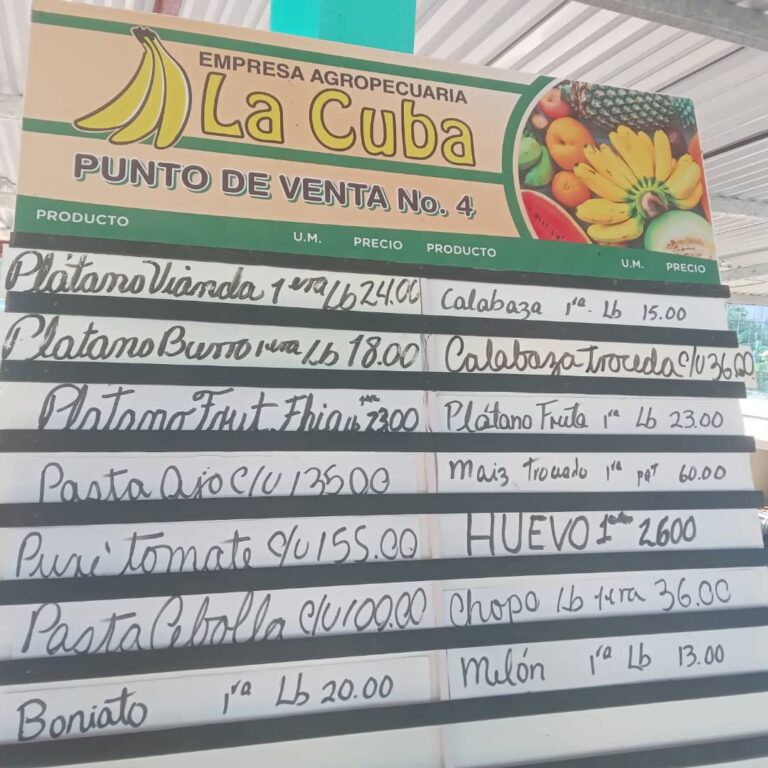 EMPRESA AGROPECUARIA
La Cuba
PUNTO DE VENTA No. 4
PRODUCTO U.M. PRECIO
Plátano Vianda 1era Lb 24.00
Platano Burro 1era Lb 18.00
Platano Frut. Fhia Lb 1era 23.00
Pasta Ajo C/U 135.00
Puré tomate C/U 155.00
Pasta Cebolla C/U 100.00
Boniato 1ra Lb 20.00
PRODUCTO U.M. PRECIO
Calabaza 1ra. Lb 15.00
Calabaza troceda C/U 36.00
Plátano Fruta 1ra Lb 23.00
Maiz trouado 1ra pqt 60.00
HUEVO 2600
Chopo Lb 1era 36.00
Melón 1ra Lb 13.00